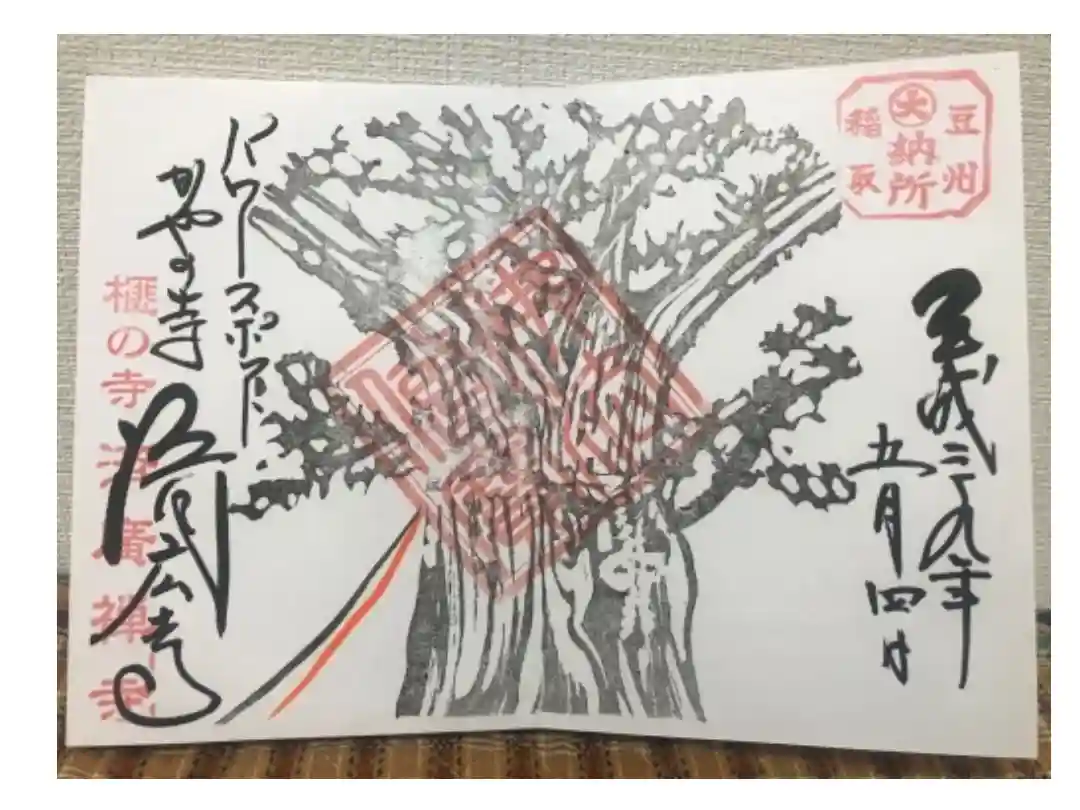 豆州
大納所
稲取
平成二十九年
五月四日
パワースポット
かやの寺 済広寺
榧の寺 済廣禅寺